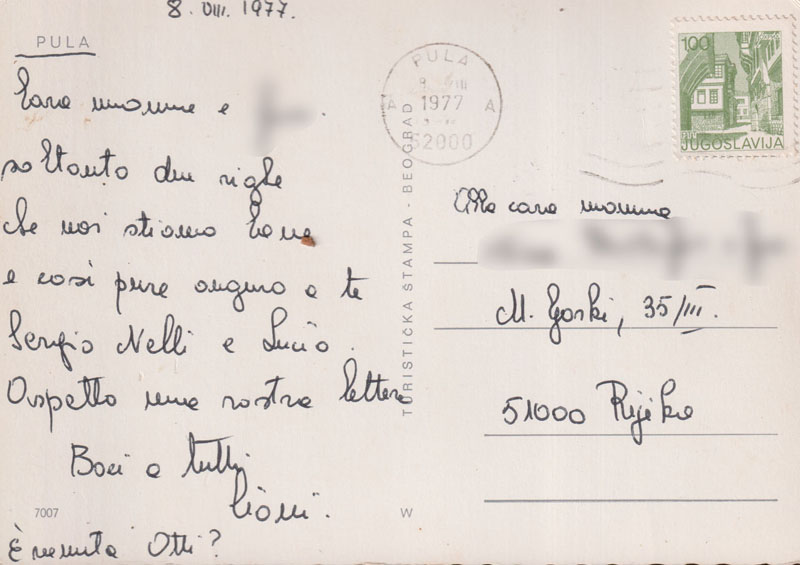 8. VIII. 1977.
PULA
Cara mamma e
soltanto due righe
che noi stiamo bene
e così pure auguro a te
Sergio Nelli e Lucio.
Aspetto una vostra lettera
Baci a tutti
È venuta Otti?
7007
W
TURISTIČKA ŠTAMPA - BEOGRAD
PULA
1977
A A
52000
100
JUGOSLAVIJA
Alla cara mamma
M. Gorki, 35/III.
51000 Rijeka